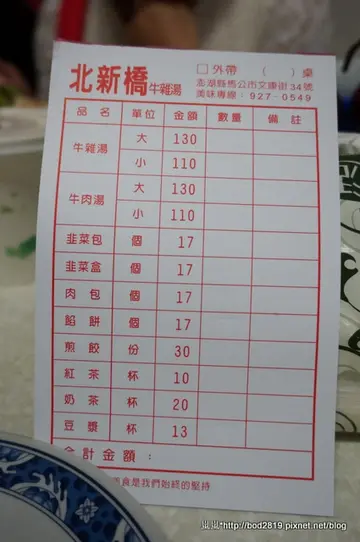 北新橋牛雜湯
□外帶 （ ）桌
澎湖縣馬公市文康街34號
美味專線：927-0549
品名 單位 金額 數量 備註
牛雜湯 大 130
小 110
牛肉湯 大 130
小 110
韭菜包 個 17
韭菜盒 個 17
肉包 個 17
餡餅 個 17
煎餃 份 30
紅茶 杯 10
奶茶 杯 20
豆漿 杯 13
合計金額：
美食是我們始終的堅持
http://bod2819.pixnet.net/blog